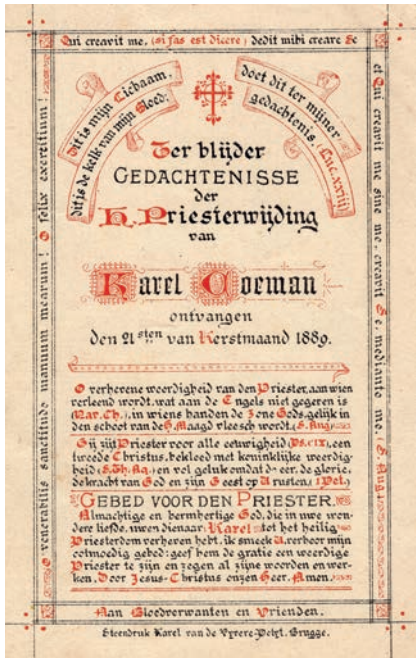 Qui creavit me, (si fas est dicere) dedit mihi creare Se
et Qui creavit me sine me, creavit Se, mediante me. (S. Aug.)
O venerabilis sanctitudo manuum mearum! O felix exercitium!
Dit is mijn Lichaam,
dit is de kelk van mijn Bloed;
doet dit ter mijner
gedachtenis. (Luc. xxiii)
Ter blijder
GEDACHTENISSE
der
H. Priesterwijding
van
Karel Coeman
ontvangen
den 21sten van Kerstmaand 1889.
O verhevene weerdigheid van den Priester, aan wien
verleend wordt, wat aan de Engels niet gegeven is
(Mar. Ch.), in wiens handen de Zone Gods, gelijk in
den schoot van de H. Maagd vleesch wordt. (S. Aug.)
Gij zijt Priester voor alle eeuwigheid (Ps. CIX), een
tweede Christus, bekleed met koninklijke weerdig-
heid (S. Th. Aq.) en vol geluk omdat de eer, de glorie,
de kracht van God en zijn Geest op U rusten. (1 Pet.)
GEBED VOOR DEN PRIESTER.
Almachtige en bermhertige God, die in uwe won-
dere liefde, uwen dienaar Karel tot het heilig
Priesterdom verheven hebt, ik smeek U, verhoor mijn
ootmoedig gebed: geef hem de gratie een weerdige
Priester te zijn en zegen al zijne woorden en wer-
ken. Door Jesus-Christus onzen Heer. Amen.
Aan Bloedverwanten en Vrienden.
Steendruk Karel van de Vyvere-Petyt. Brugge.